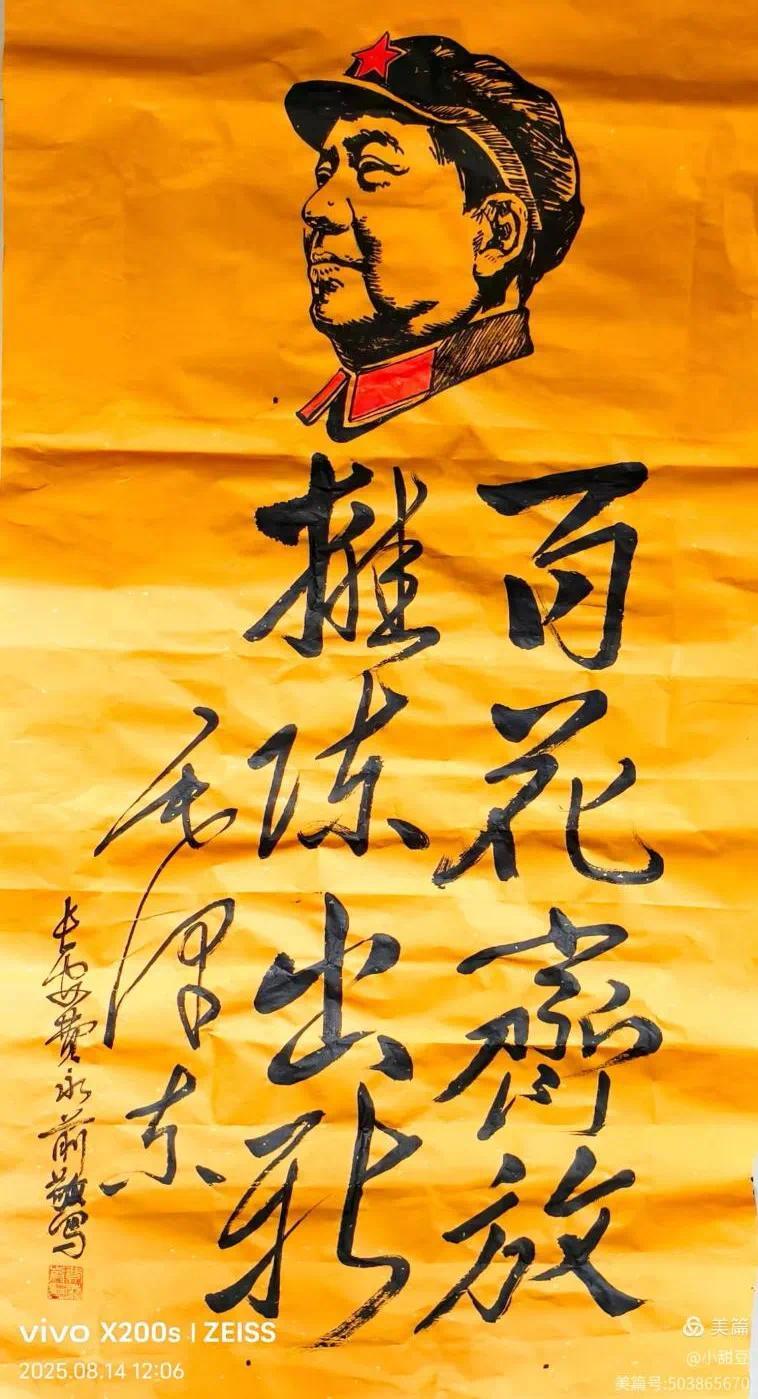 百花齊放
推陈出新
毛泽东
长安费永前敬写
vivo X200s | ZEISS
2025.08.14 12:06
美篇
@小甜豆
美篇号:503865670